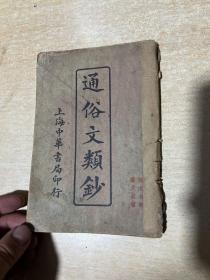 通俗文類鈔
上海中華書局印行